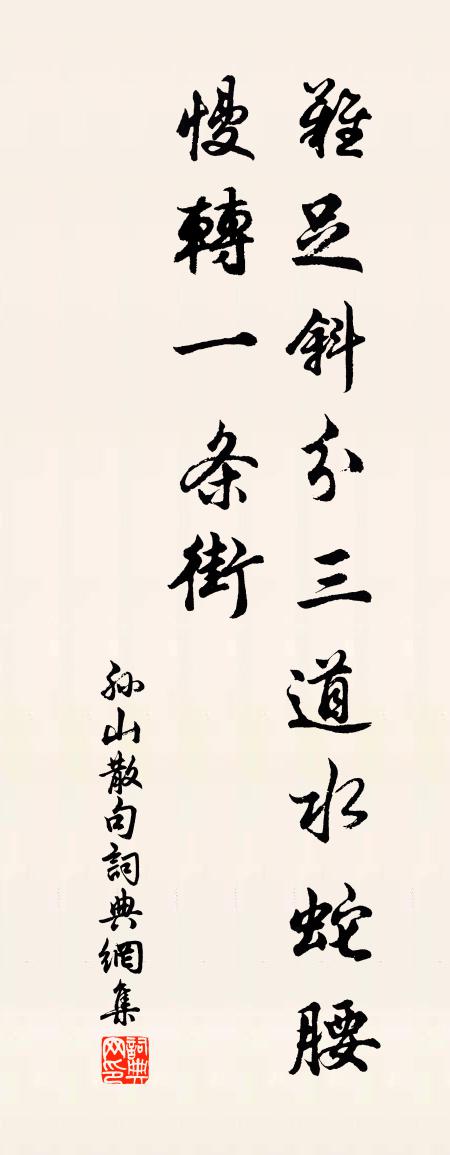 雞足斜分三道水蛇腰
慢轉一条街
孙山散句詞典網集
詞典
网印